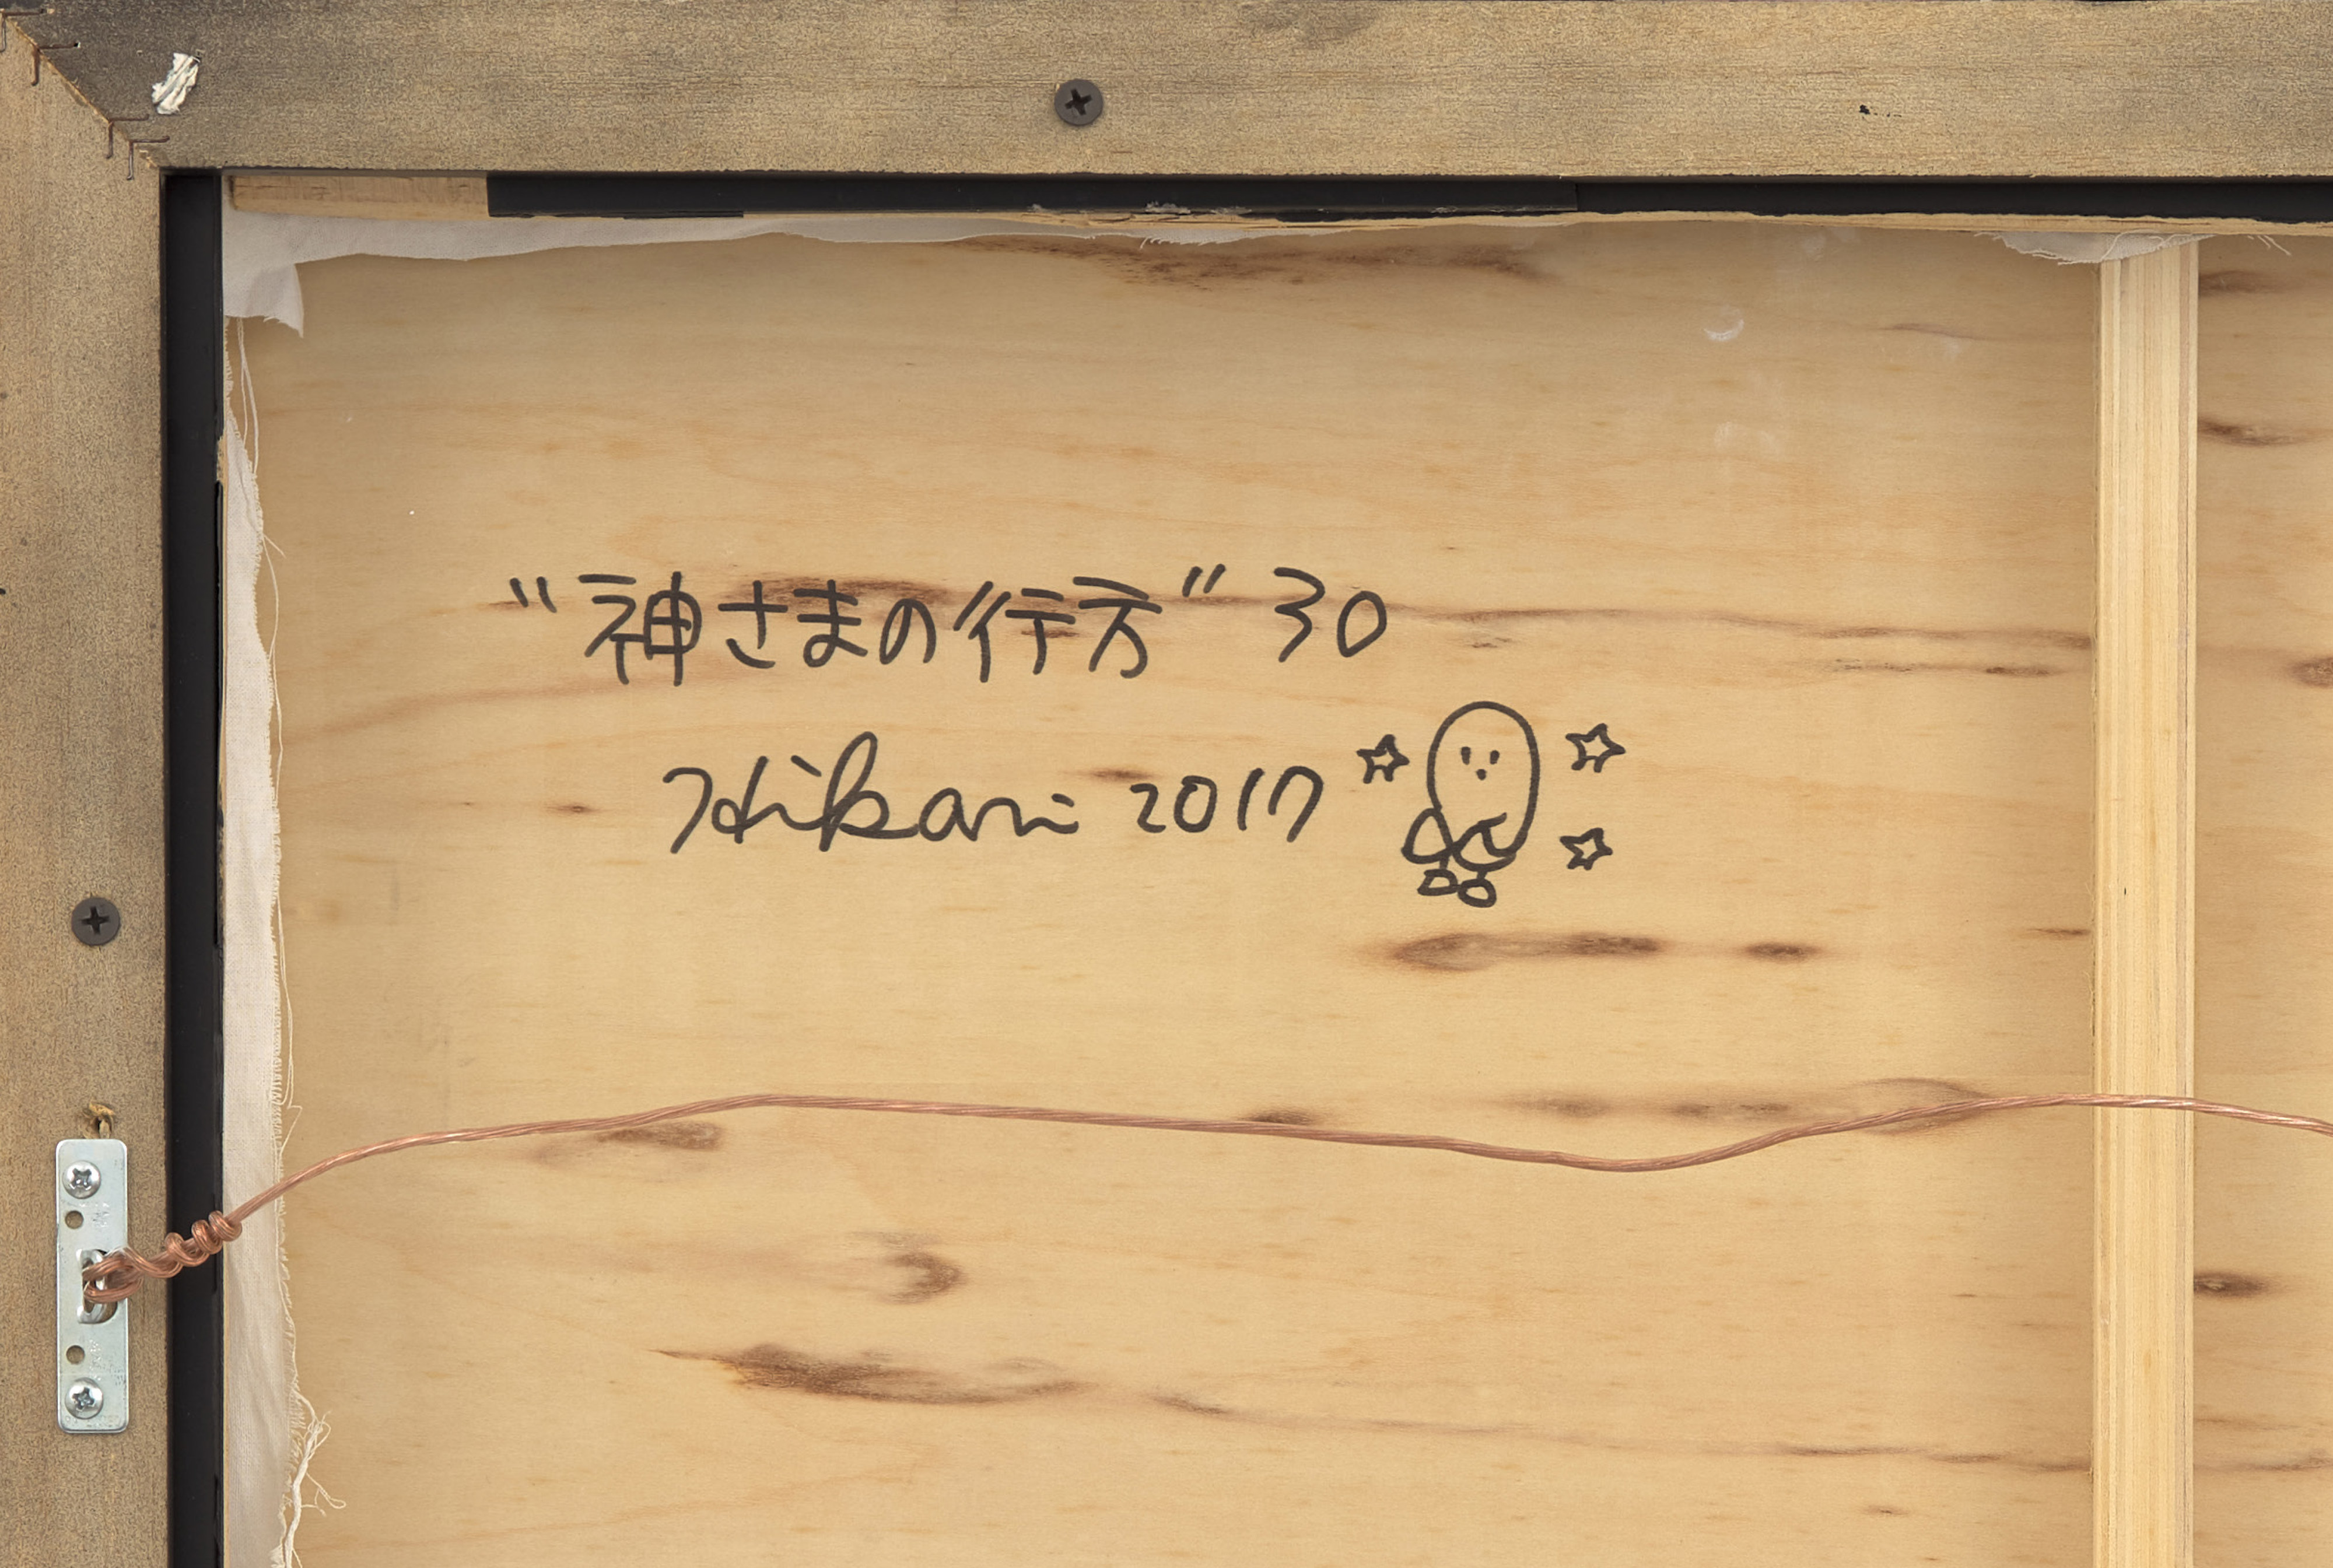 “神さまの行方” 30
Hikari 2017